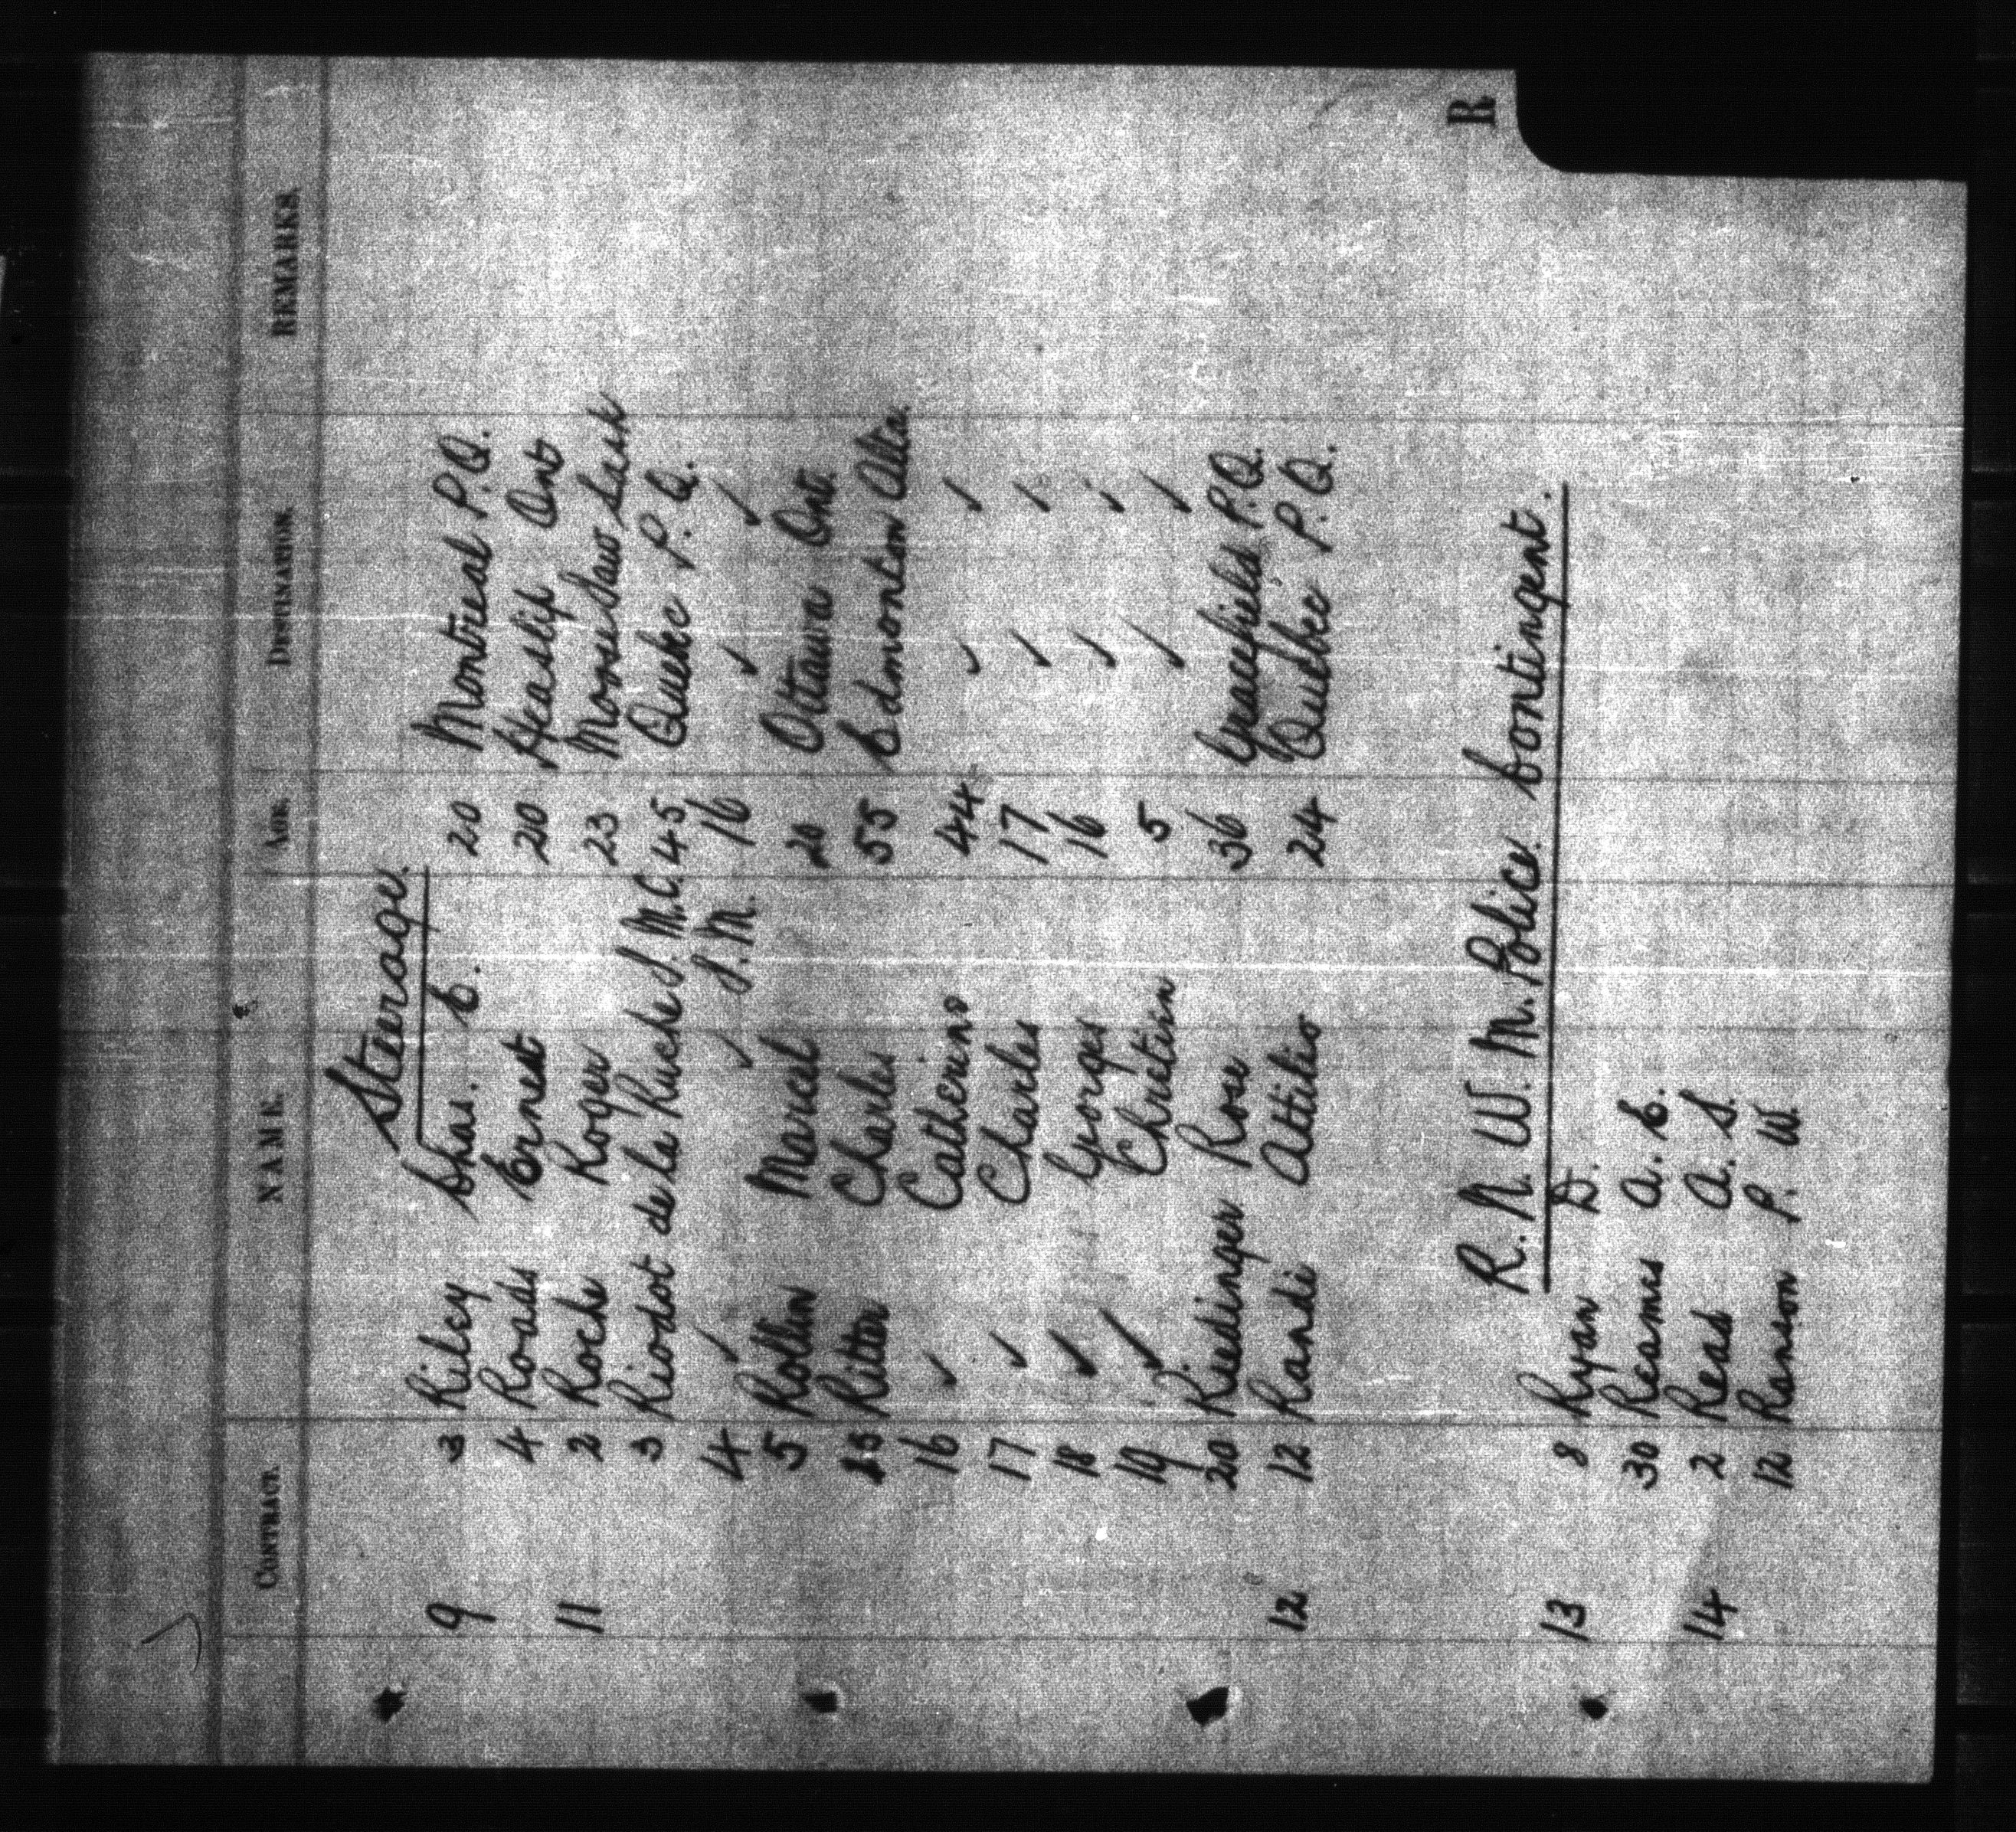 CONTRACT. NAME. AGE. DESTINATION. REMARKS.
Steerage.
9 3 Riley Chas. E. 20 Montreal P.Q.
4 Roads Ernest 20 Heaslip Ont
11 2 Roche Roger 23 Moose Jaw Sask
3 Riodot de la Ruche J. M.C. 45 Quebec P.Q.
4 ✓ ✓ J.M. 16 ✓ ✓
5 Rollin Marcel 20 Ottawa Ont.
15 Ritter Charles 55 Edmonton Alta.
16 ✓ Catherine 44 ✓ ✓
17 ✓ Charles 17 ✓ ✓
18 ✓ Georges 16 ✓ ✓
19 ✓ Chretien 5 ✓ ✓
20 Riedinger Rose 36 Gracefield P.Q.
12 12 Randi Attilio 24 Quebec P.Q.
R. N. W. M. Police Contingent.
13 8 Ryan D.
30 Reames A. E.
14 2 Read A. S.
12 Ranson P. W.
R